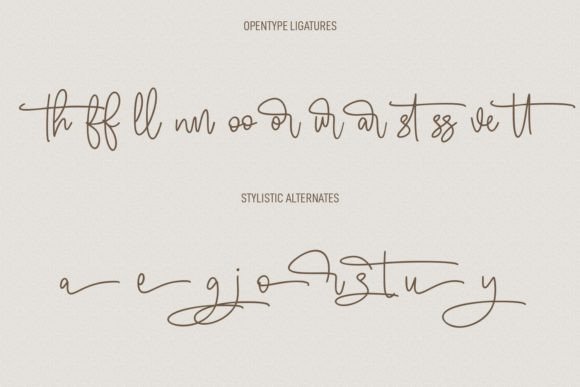 OPENTYPE LIGATURES
th ff ll nn oo or ur ar st ss ve tt
STYLISTIC ALTERNATES
a e g j o r s t u y